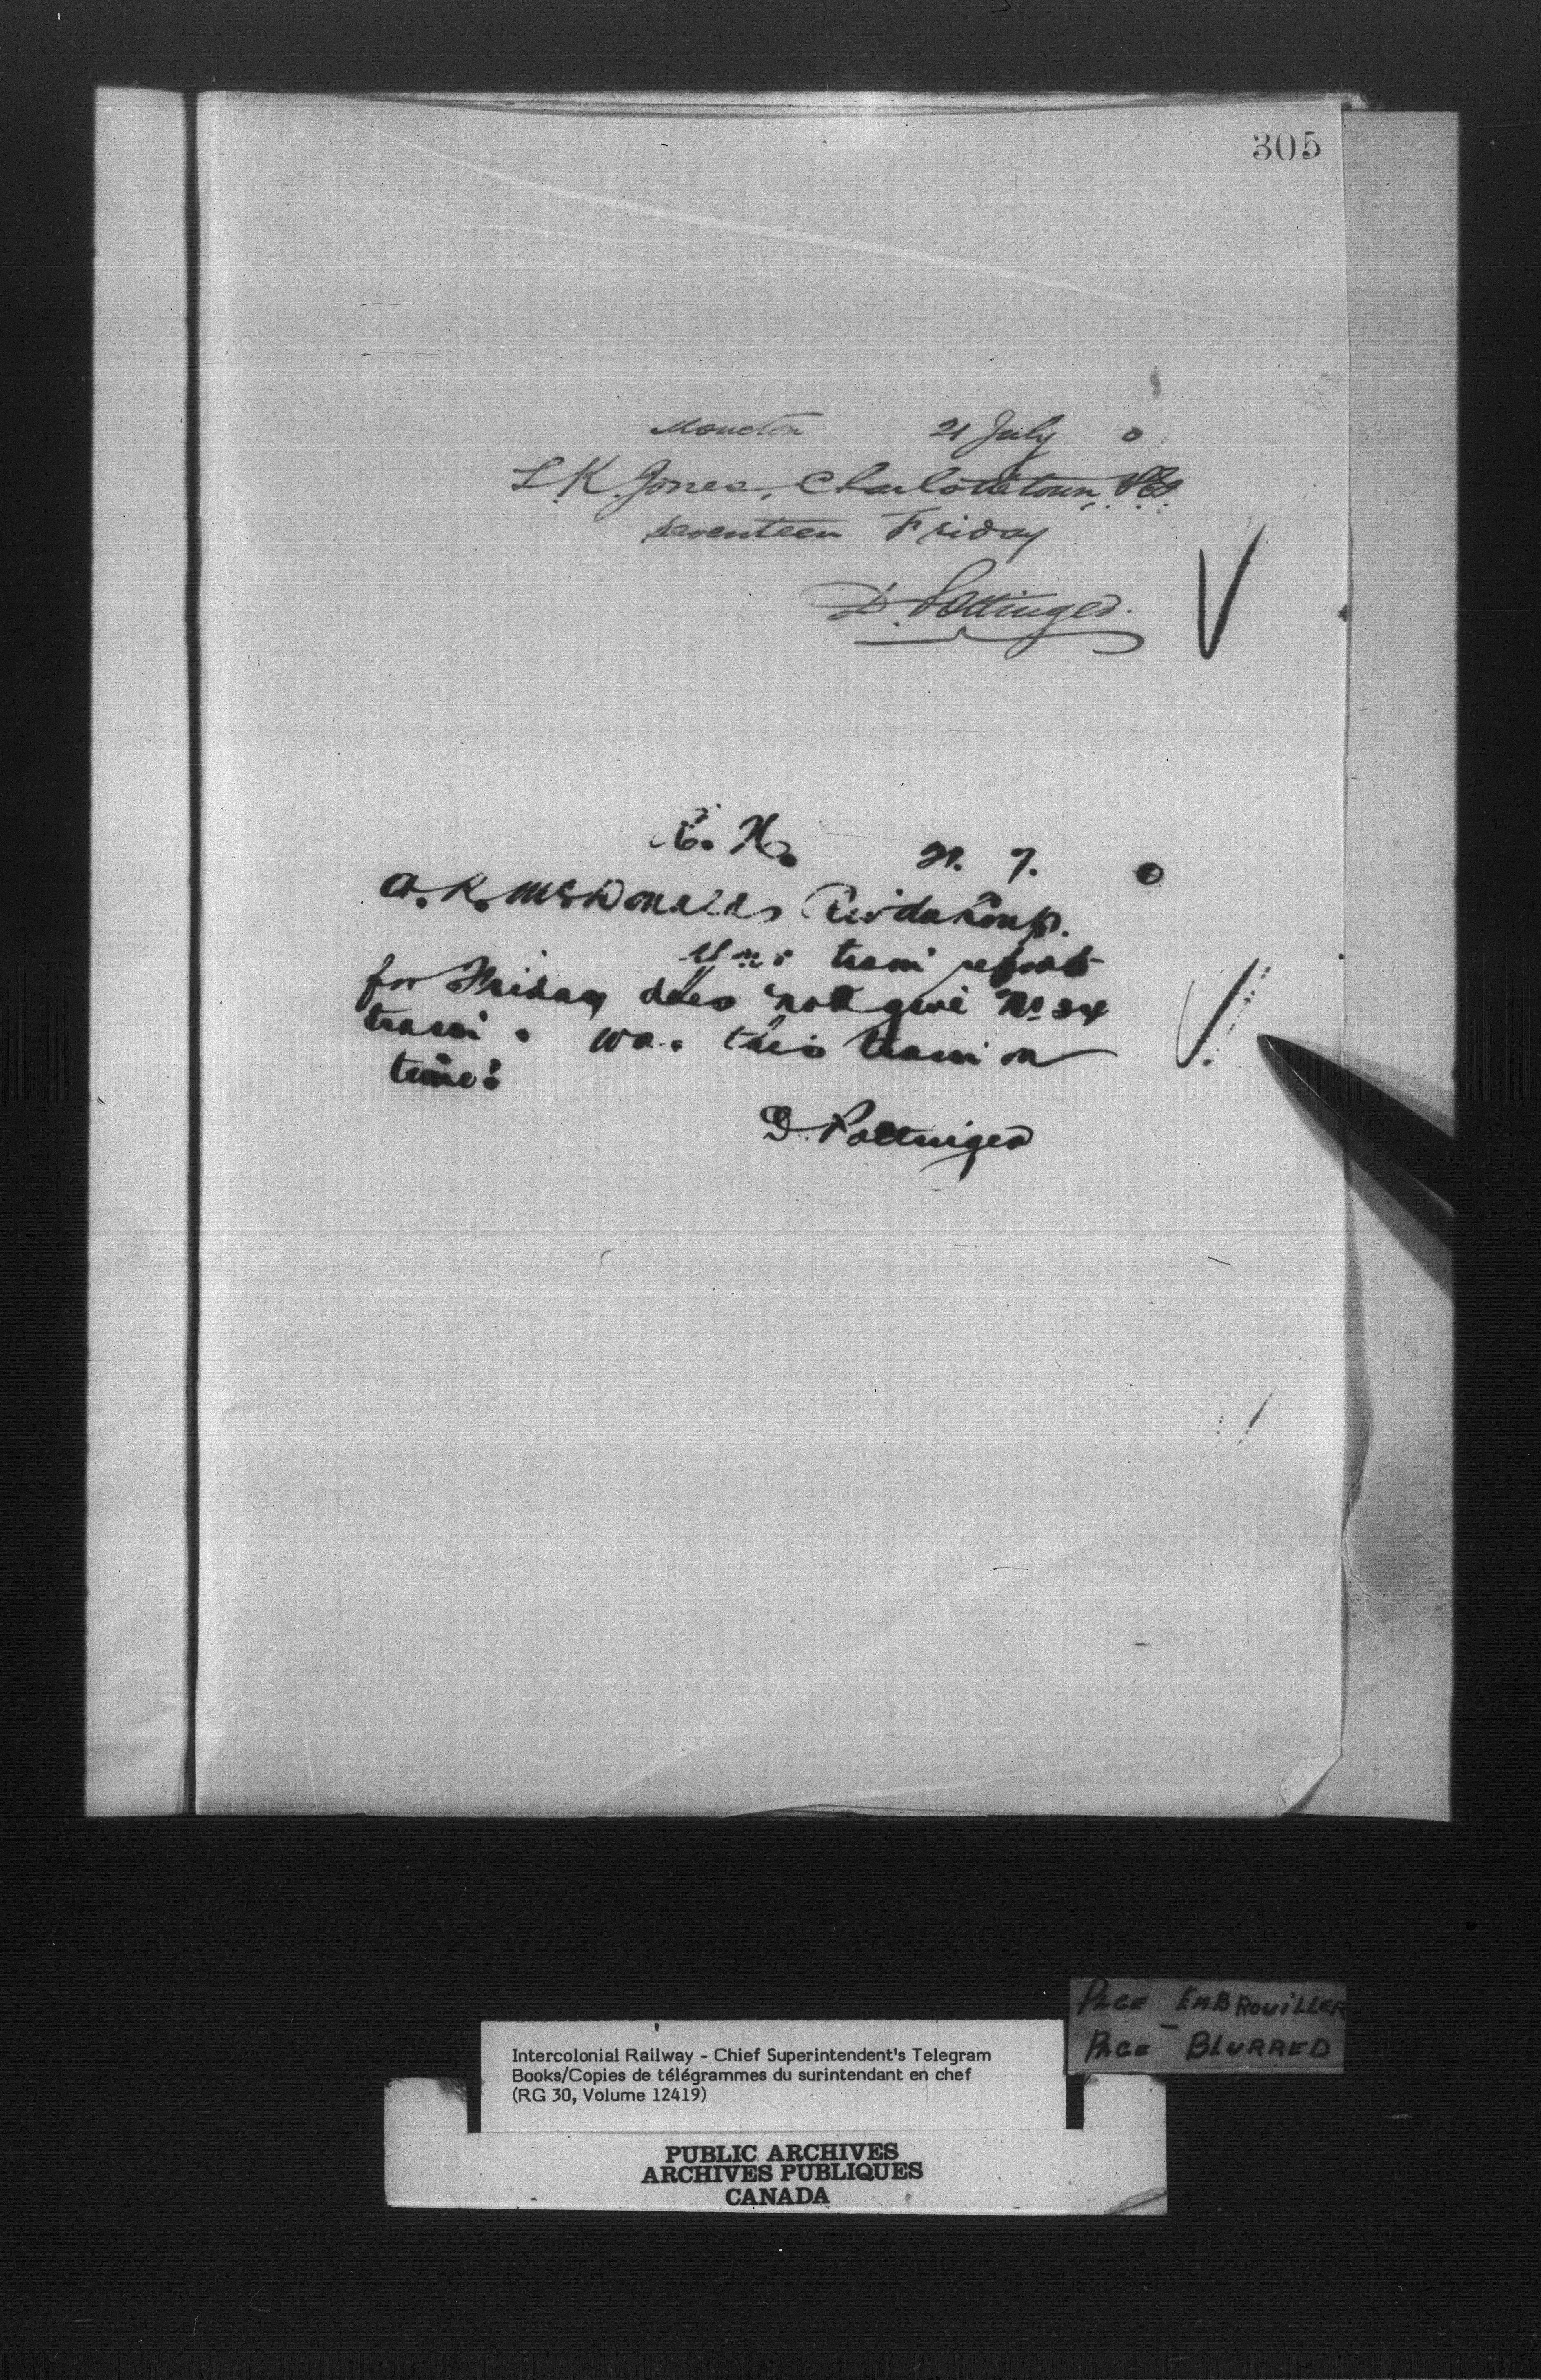 305
Moncton 21 July 0
L.K. Jones, Charlottetown P.E.I.
seventeen Friday
D. Pottinger.
C. H. 21. 7. 0
A. K. McDonald, River du Loup.
Your train report
for Friday does not give No 34
train. was this train on
time?
D. Pottinger
PAGE EMBROUILLER
PAGE - BLURRED
Intercolonial Railway - Chief Superintendent's Telegram
Books/Copies de télégrammes du surintendant en chef
(RG 30, Volume 12419)
PUBLIC ARCHIVES
ARCHIVES PUBLIQUES
CANADA